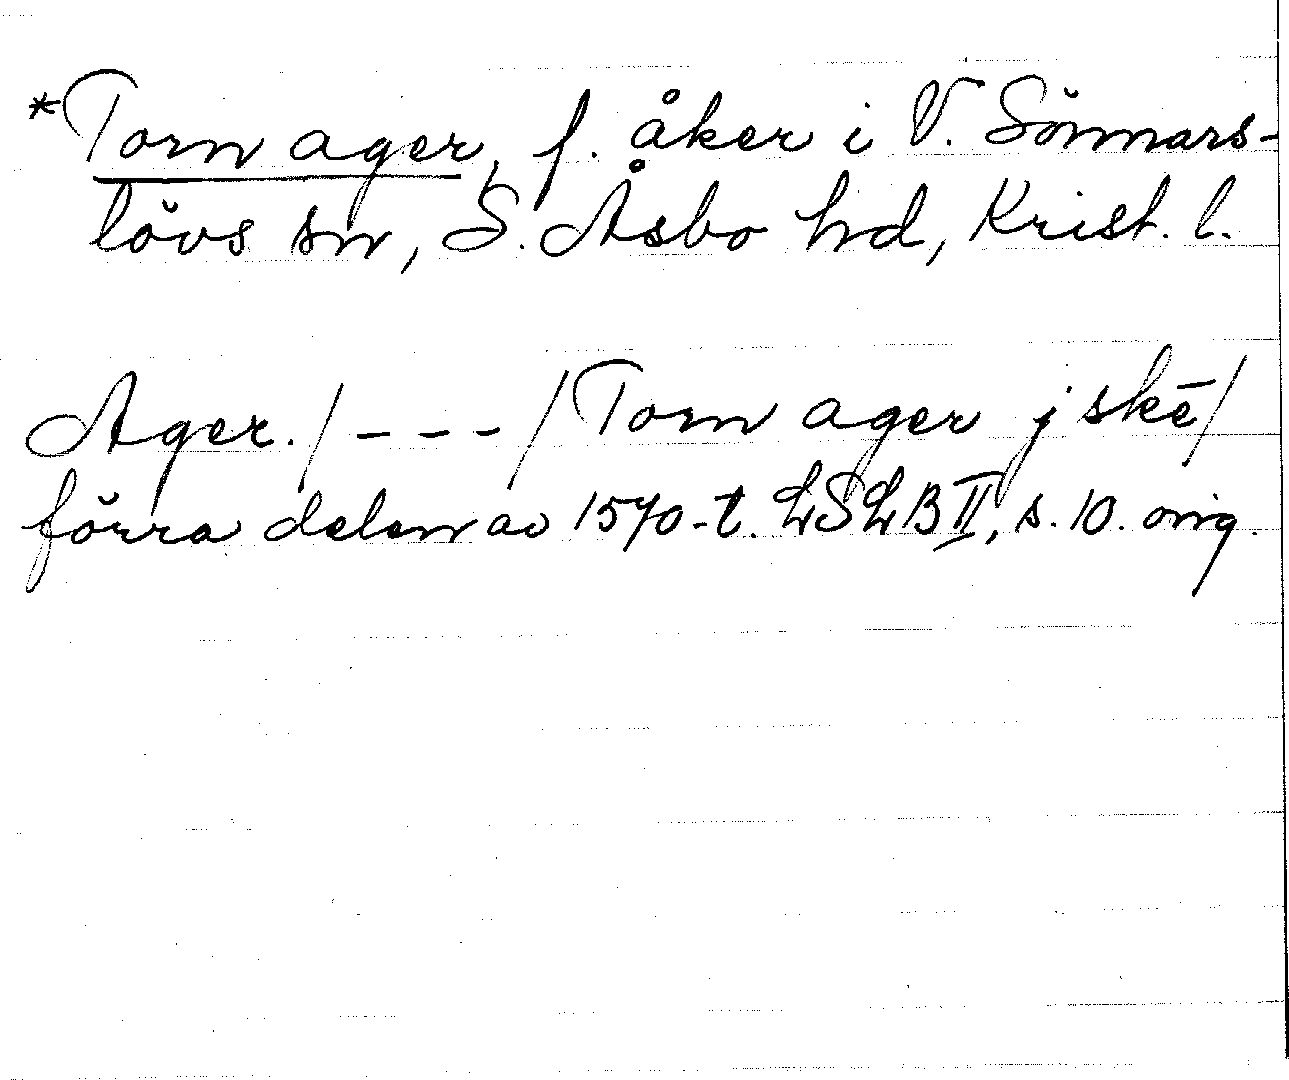 *Torn ager, f. åker i V. Sönnars-
lövs sn, S. Åsbo hd, Krist. l.
Ager. / - - - / Torn ager j skē /
förra delen av 1570-t. LSLB II, s. 10. orig.